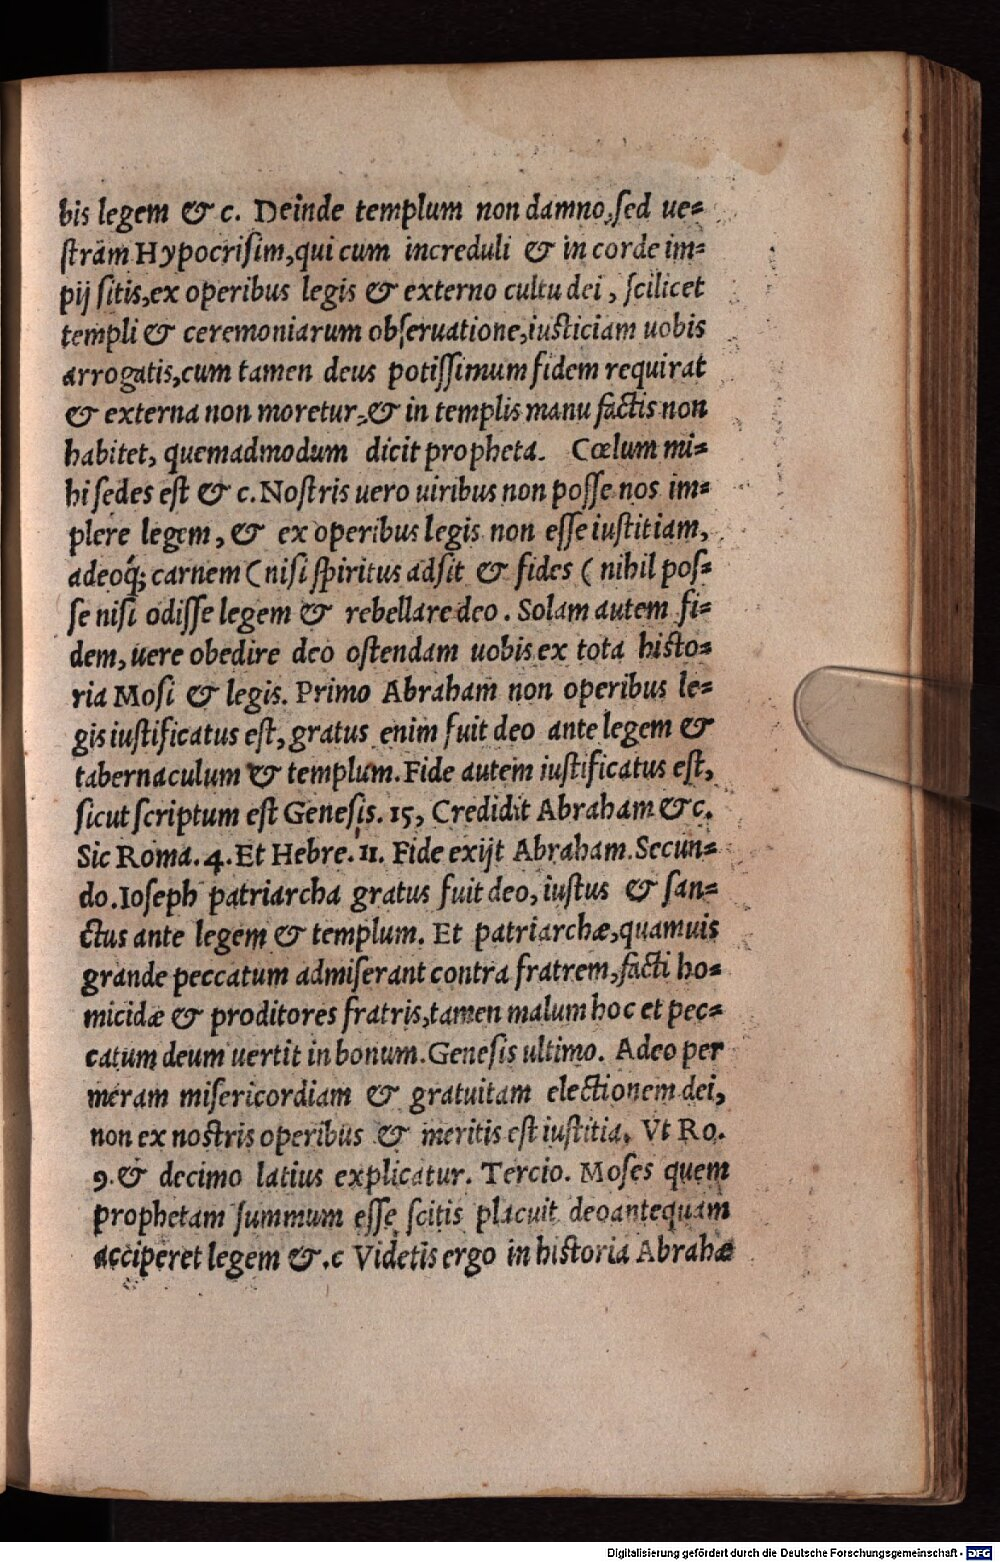 bis legem & c. Deinde templum non damno, sed ue=
ſtram Hypocriſim, qui cum increduli & in corde im=
pij ſitis, ex operibus legis & externo cultu dei, ſcilicet
templi & ceremoniarum obſeruatione, iuſticiam uobis
arrogatis, cum tamen deus potiſſimum fidem requirat
& externa non moretur, & in templis manu factis non
habitet, quemadmodum dicit propheta. Cœlum mi=
hi ſedes eſt & c. Noſtris uero uiribus non poſſe nos im=
plere legem, & ex operibus legis non eſſe iuſtitiam,
adeoq́; carnem ( niſi ſpiritus adſit & fides ( nihil poſ=
ſe niſi odiſſe legem & rebellare deo. Solam autem fi=
dem, uere obedire deo oſtendam uobis ex tota hiſto=
ria Moſi & legis. Primo Abraham non operibus le=
gis iuſtificatus eſt, gratus enim fuit deo ante legem &
tabernaculum & templum. Fide autem iuſtificatus eſt,
ſicut ſcriptum eſt Geneſis. 15, Credidit Abraham & c.
Sic Roma. 4. Et Hebre. 11. Fide exijt Abraham. Secun=
do. Ioſeph patriarcha gratus fuit deo, iuſtus & ſan=
ctus ante legem & templum. Et patriarchæ, quamuis
grande peccatum admiſerant contra fratrem, facti ho=
micidæ & proditores fratris, tamen malum hoc et pec=
catum deum uertit in bonum. Geneſis ultimo. Adeo per
meram miſericordiam & gratuitam electionem dei,
non ex noſtris operibus & meritis eſt iuſtitia. Vt Ro.
9. & decimo latius explicatur. Tercio. Moſes quem
prophetam ſummum eſſe ſcitis placuit deo antequam
acciperet legem &. c Videtis ergo in hiſtoria Abrahæ
Digitalisierung gefördert durch die Deutsche Forschungsgemeinschaft - DFG